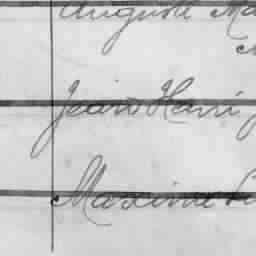 Auguste
Jean Henri
Maxime